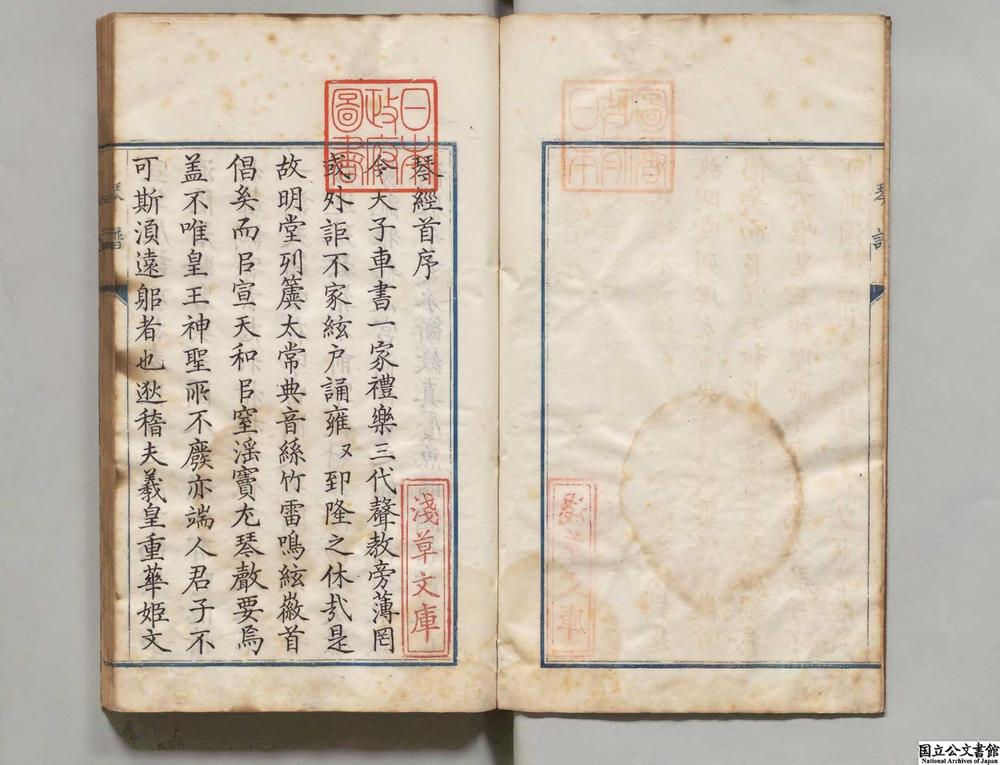 琴經首序
今天子車書一家禮樂三代聲教旁薄罔
或外詎不家絃户誦雍〻郅隆之休㢤是
故明堂列簴太常典音絲竹雷鳴絃徽首
倡矣而㠯宣天和㠯窒滛竇尤琴聲要焉
盖不唯皇王神聖所不廢亦端人君子不
可斯湏遠躳者也逖稽夫羲皇重華姬文
日本
政府
圖書
淺草文庫
琴譜
国立公文書館
National Archives of Japan